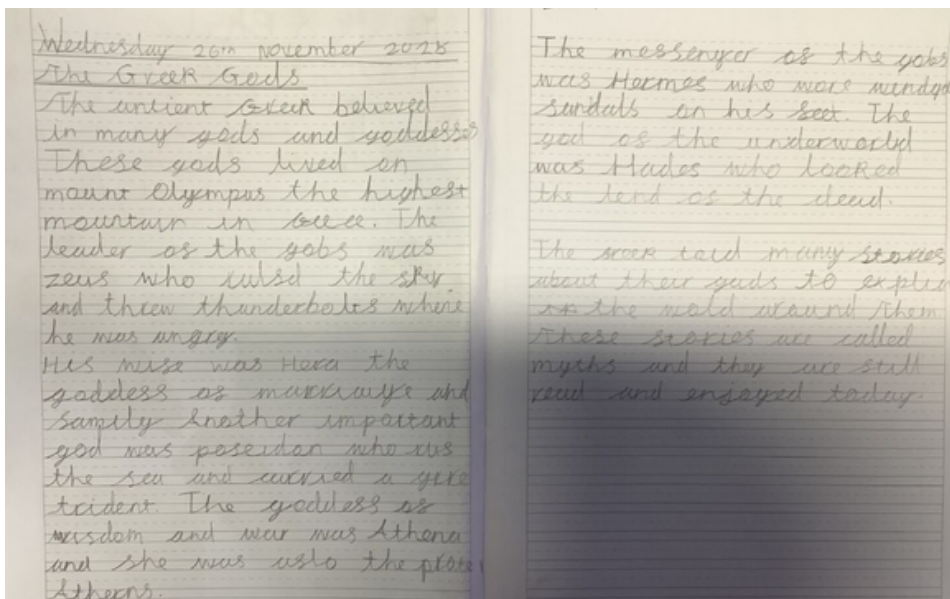 Wednesday 26th November 2025
The Greek Gods
The antient Greek believed
in many gods and goddesses
These gods lived on
mount Olympus the highest
mountain in Geece. The
leader of the gobs was
zeus who rulsd the sky.
and threw thunderbolts whene
he was angry.
His wise was Hera the
goddess of marriage and
family Another important
god was poseidon who rus
the sea and carried a
trident. The goddess of
wisdom and war was Athena
and she was aslo the
Atherns.
The messenger of the gobs
was Hermes who wore winded
sandals on his feet. The
god of the underworld
was Hades who looked
the lend of the dead.
The Greek told many stories
about their gods to
the wold around them
These stories are called
myths and they are still
read and enjoyed today.